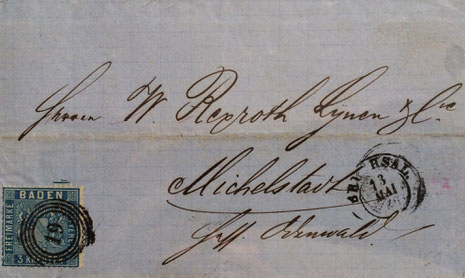 Herren W. Rexroth Lynen & Cie
Michelstadt
Hess. Odenwald.
BRUCHSAL
13
MAI
BADEN
FREIMARKE
3 KREUZER
19